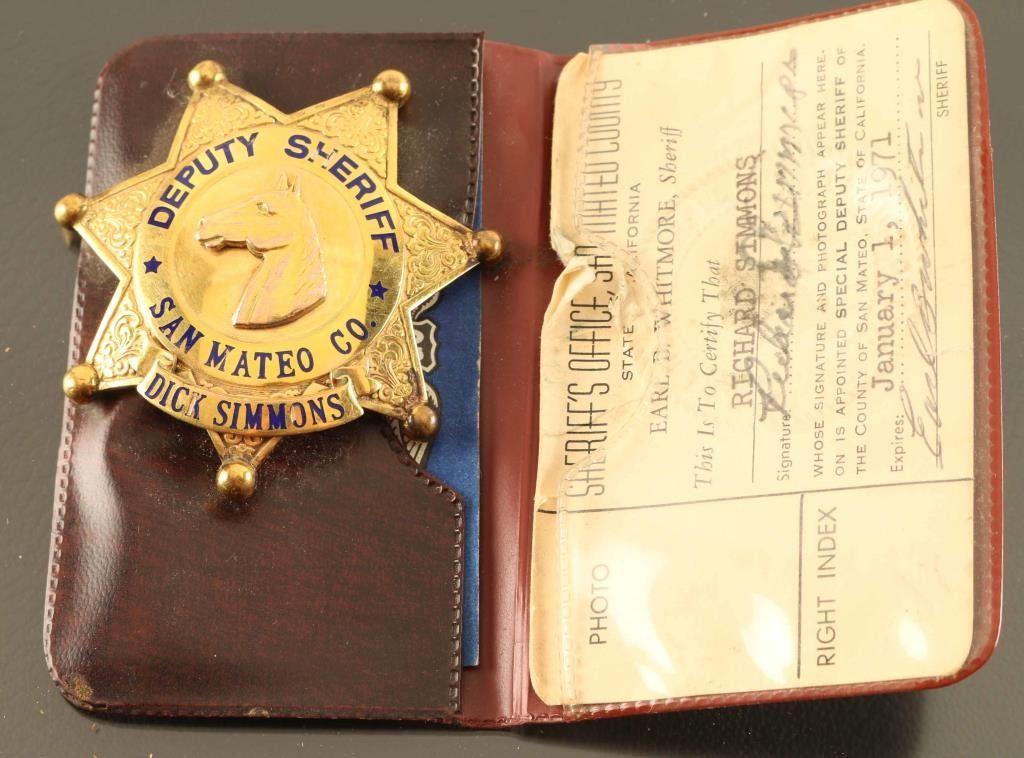 DEPUTY SHERIFF
SAN MATEO CO.
DICK SIMMONS
SHERIFF'S OFFICE, SAN MATEO COUNTY
STATE CALIFORNIA
EARL B. WHITMORE, Sheriff
This Is To Certify That
RICHARD SIMMONS
Signature: Richard Simmons
WHOSE SIGNATURE AND PHOTOGRAPH APPEAR HERE-
ON IS APPOINTED SPECIAL DEPUTY SHERIFF OF
THE COUNTY OF SAN MATEO, STATE OF CALIFORNIA.
Expires: January 1, 1971
SHERIFF
PHOTO
RIGHT INDEX